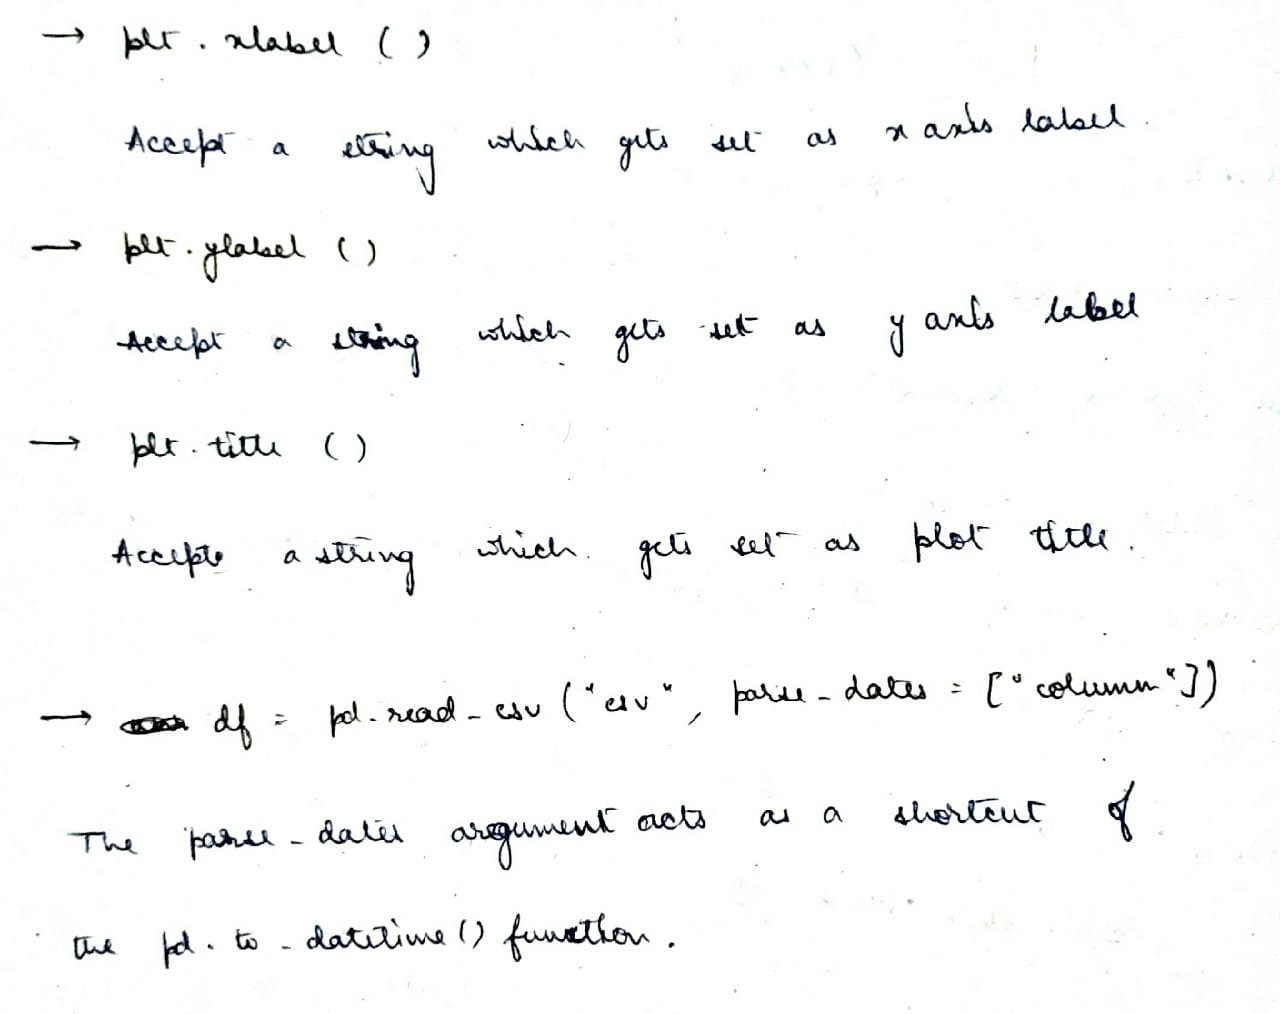 → plt . xlabel ( )
Accept a string which gets set as x axis label .
→ plt . ylabel ( )
Accept a string which gets set as y axis label
→ plt . title ( )
Accepts a string which gets set as plot title .
→ df = pd . read _ csv ( "csv" , parse _ dates = [ "column" ] )
The parse _ dates argument acts as a shortcut of
the pd . to _ datetime ( ) function .